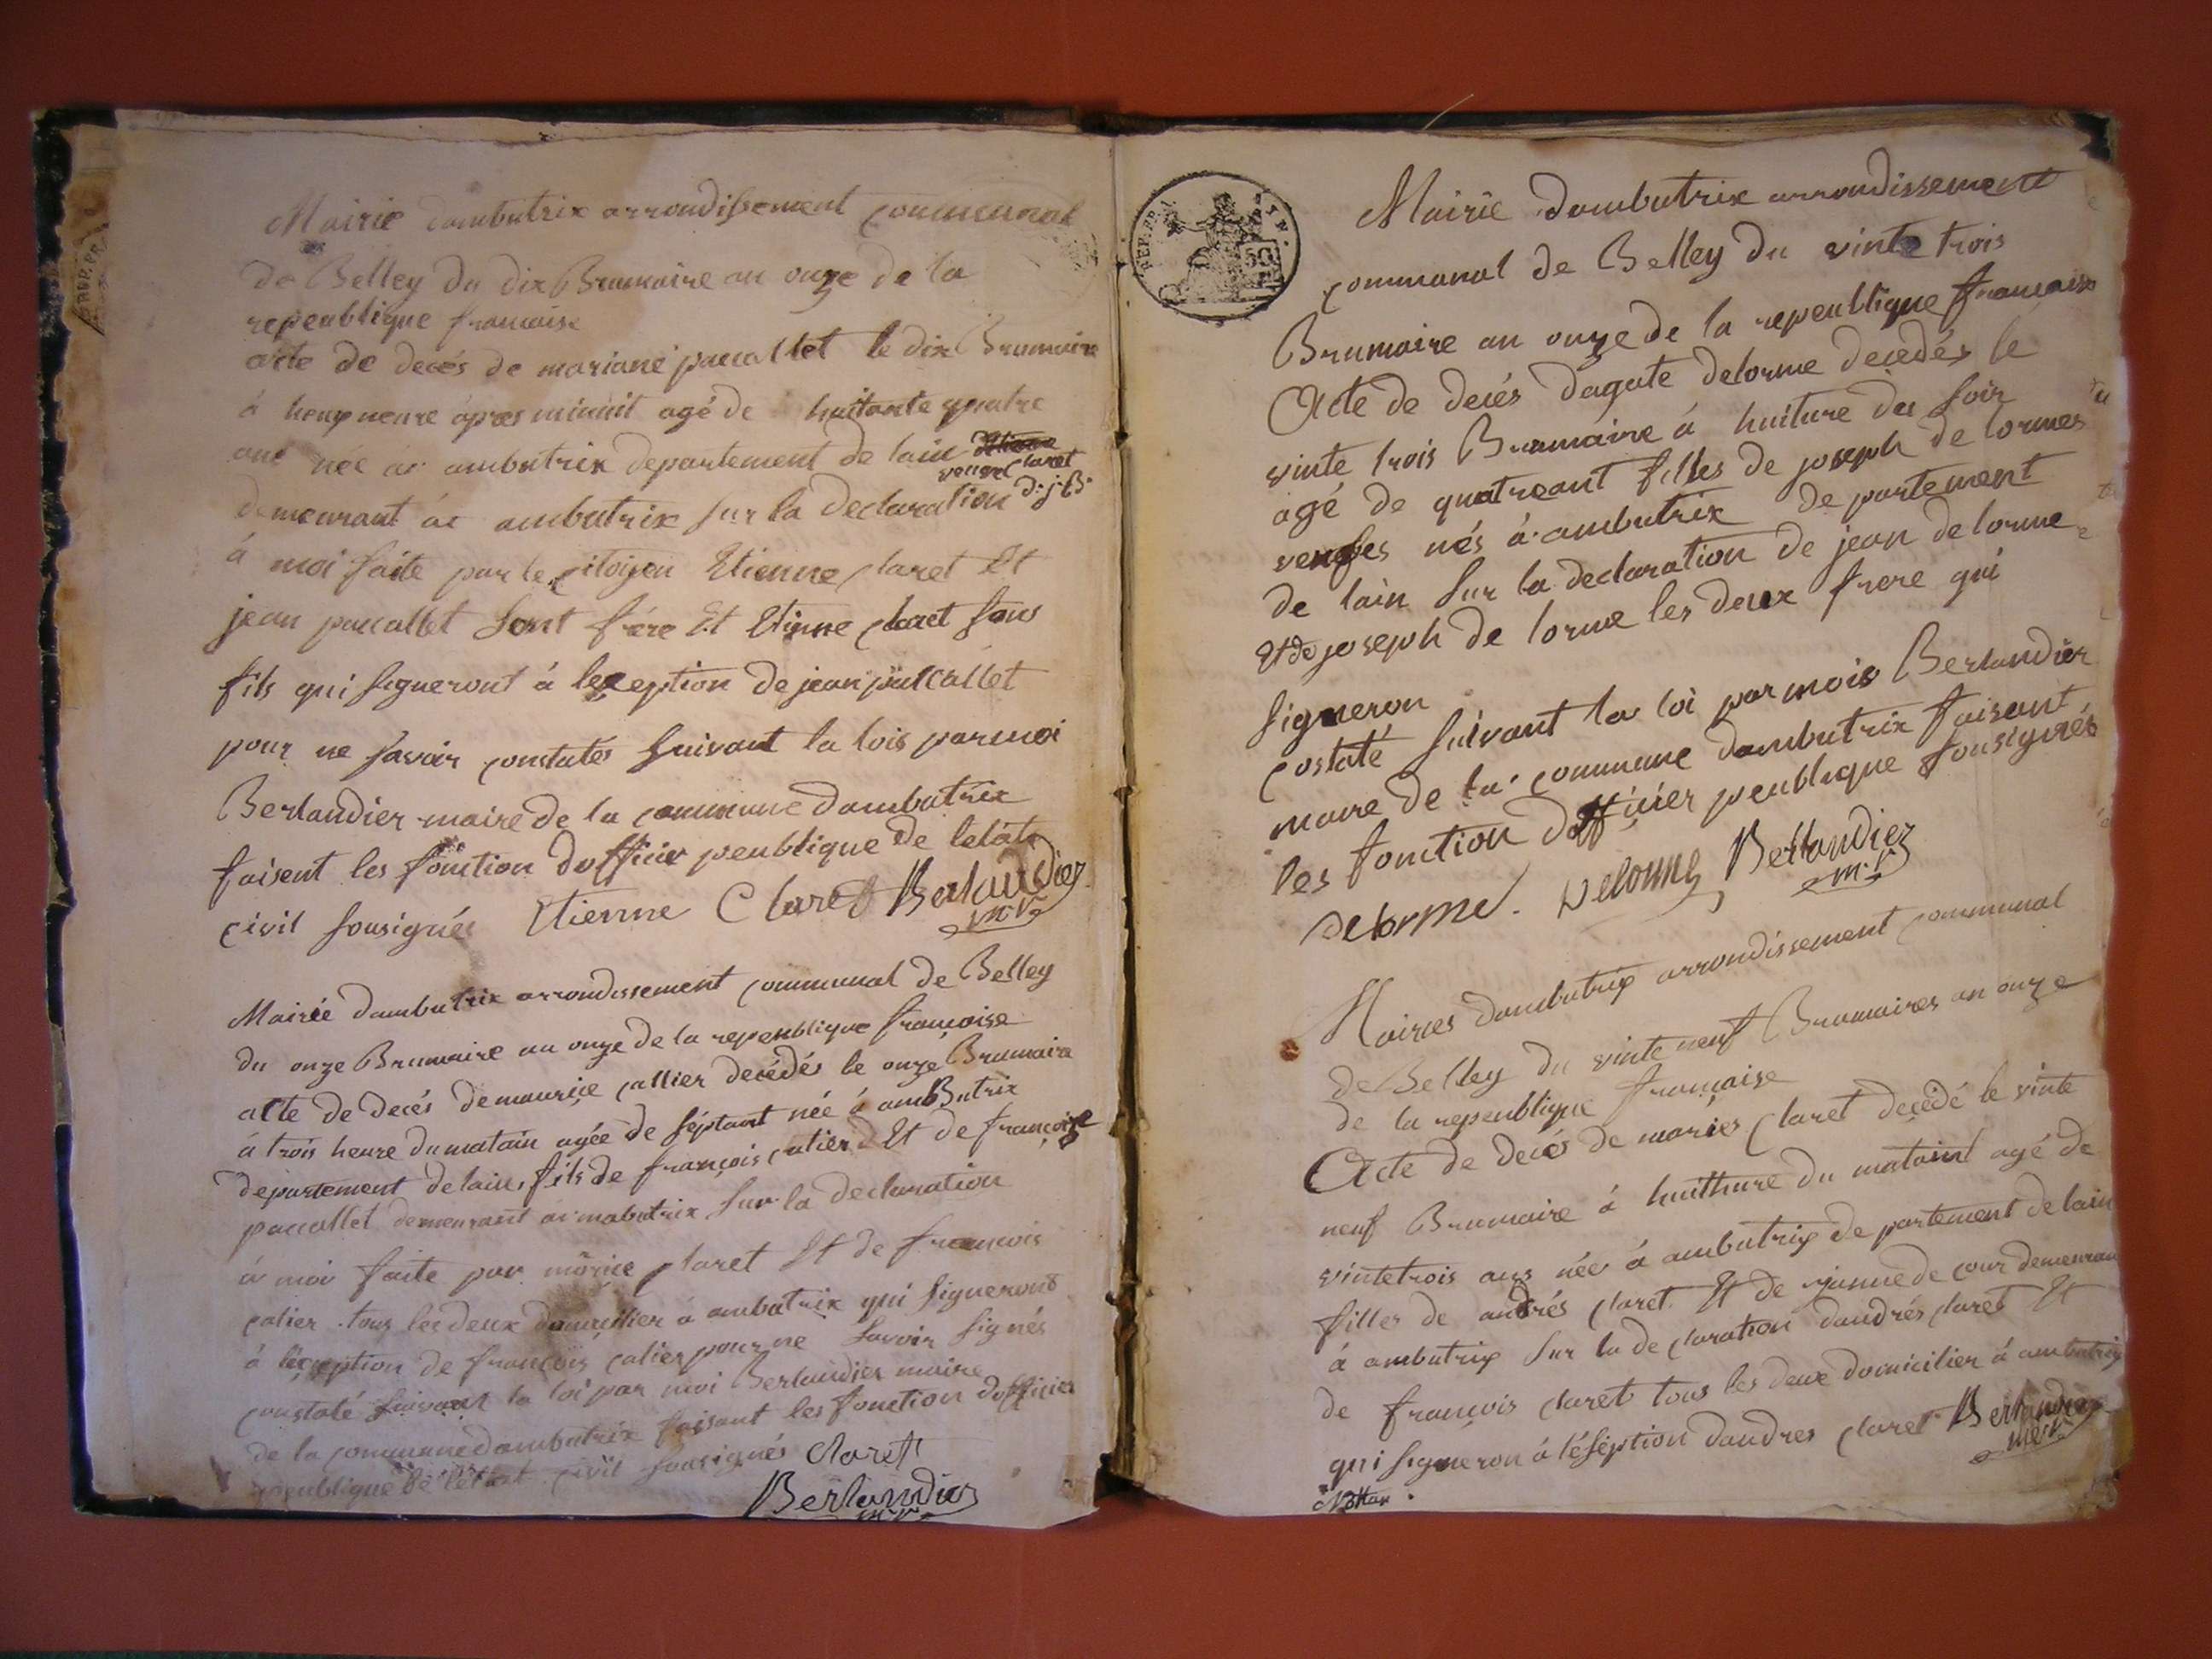 Mairie dambutrix arrondissement communal
de Belley du dix Brumaire an onze de la
repeublique francaise
acte de decés de mariane paucallet le dix Brumaire
à apres minuit agé de huitante quatre
ans née à ambutrix departement de lain
veuve claret
demeurant àt ambutrix sur la declaration d.j.B.
à moi faite par le citoyen Etienne claret Et
jean paucallet sont frére Et Etienne claret sons
fils qui signeront à lexeption de jean paucallet
pour ne savoir constatés suivant la lois parmoi
Berlandier maire de la commune dambutrix
faisent les fonction dofficier peublique de letat
civil sousignés Etienne Claret Berlandier
m.r
Mairée dambutrix arrondissement communal de Belley
du onze Brumaire an onze de la repeublique françoise
acte de decés demauriçe callier decédés le onze Brumaire
à trois heure dumatain agée de séptant née à amButrix
departement delain, fils de françois catier Et de françoise
paucallet demeurant a mabutrix sur la declaration
à moi faite par morice claret Et de francois
calier tous les deux domicilier à ambutrix qui signeront
à léxeption de françois calier pour ne savoir signés
constaté suivant la loi par moi Berlandier maire
de la commune dambutrix faisant les fonction dofficier
peublique de létat civil sousignés Claret
Berlandier
m.r
REP. FRA.
50
Mairie dambutrix arrondissement
communal de Belley du vinte trois
Brumaire an onze de la repeublique francaise
Acte de decés dagate delorme decedés le
vinte trois Brumaire à huiture du soir
agé de quatreant filles de joseph de lormes
venfes nés à ambutrix de partement
de lain sur la declaration de jean delorme
Et de joseph de lorme les deux frere qui
signeron
costaté suivant la loi par mois Berlandier
maire de la commune dambutrix faisant
les fonction dofficier peublique sousignés
delorme. Delorme Berlandier
m.r
Mairies dambutrix arrondissement communal
de Belley du vinte neuf Brumaires an onze
de la repeublique française
Acte de decés de maries claret decedé le vinte
neuf Brumaire à huithure du mataint agé de
vintetrois ans née à ambutrix de partement de lain
filles de andrés claret Et de janne de cour demeuran
à ambutrix sur la declaration dandrés claret Et
de françois claret tous les deux domicilier à ambutrix
qui signeron à léséption dandres claret Berlandier